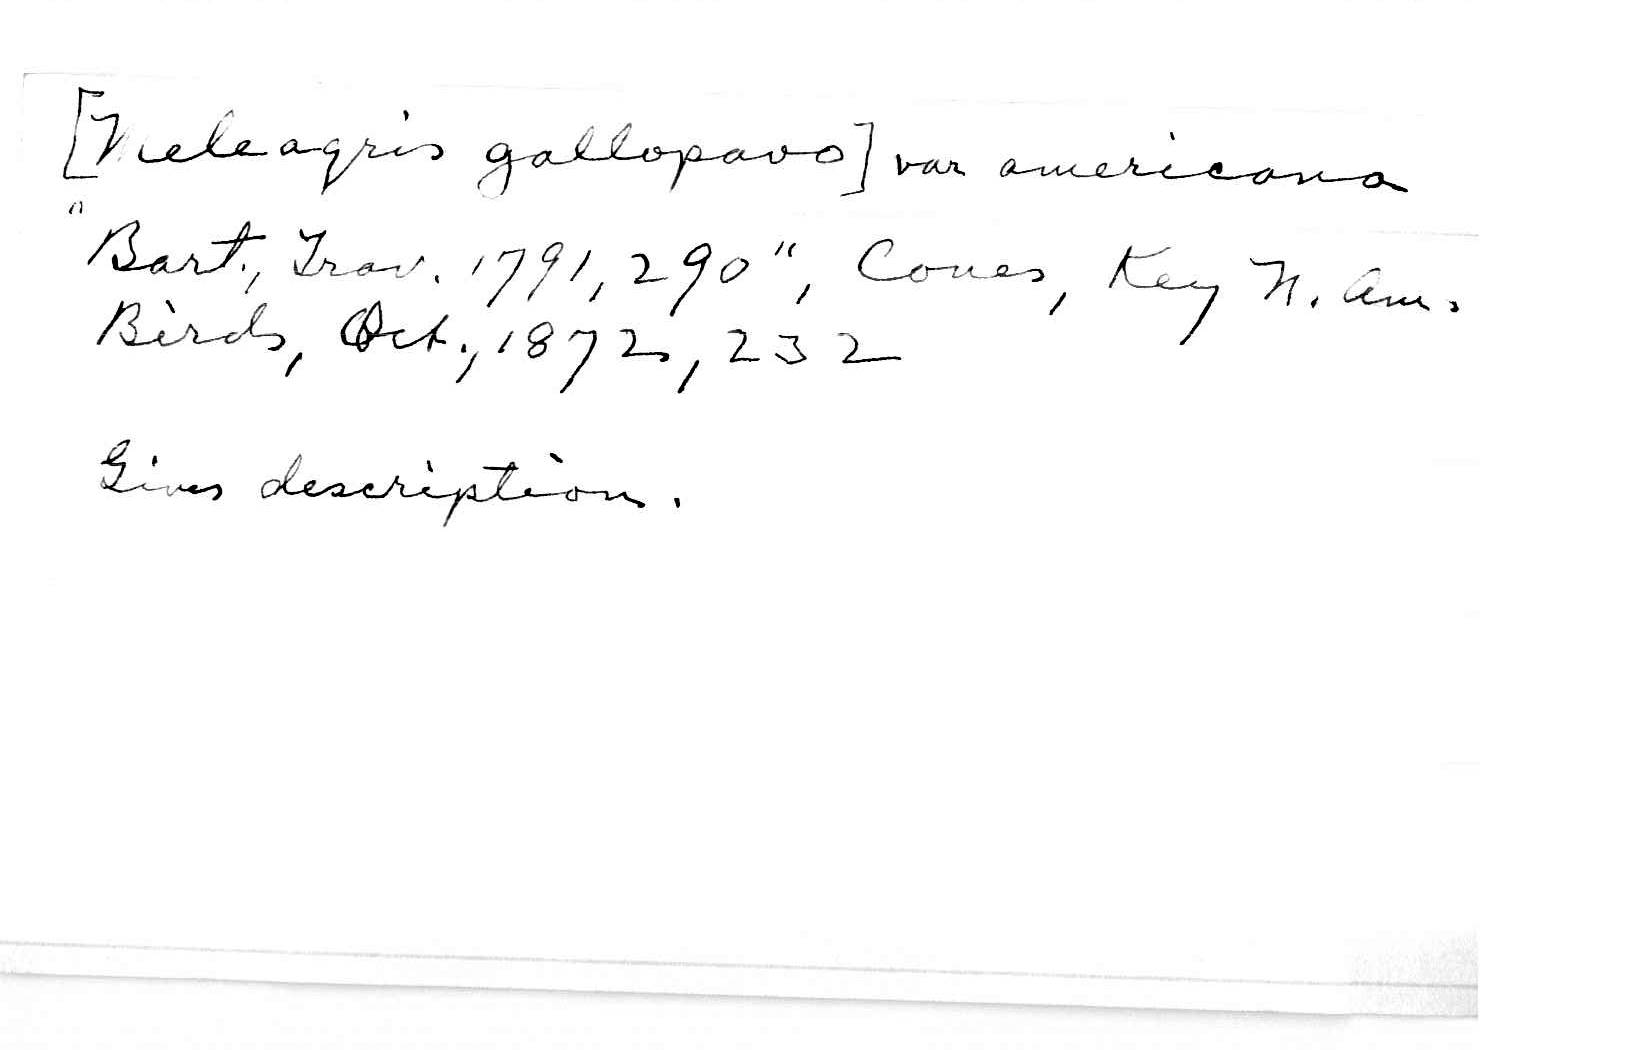 [Meleagris gallopavo] var americana
"Bart., Trav. 1791, 290", Coues, Key N. Am.
Birds, Oct., 1872, 232
Gives description.